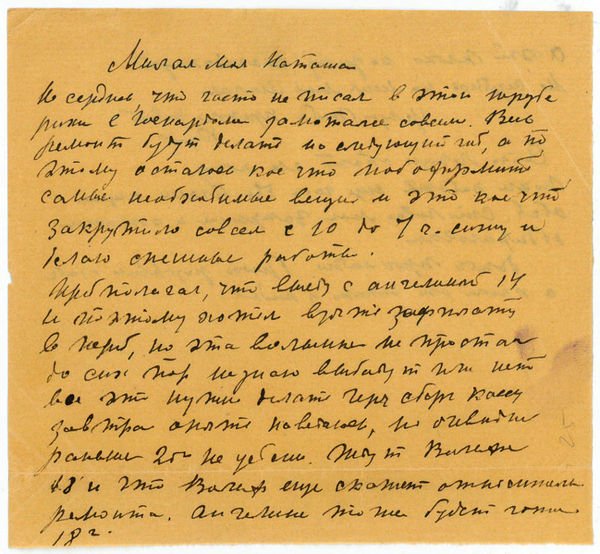 Милая моя Наташа
Не сердись, что часто не писал в этой
с совсем. Весь
ремонт будут делать на следующий год, а по
этому осталось кое что подоформить
самые необходимые вещи и это кое что
закрутило совсем с 10 до 7 ч. сижу и
делаю спешные работы.
Предполагал, что выеду с Ангелиной 14
и поэтому хотел взять зарплату
в перед, но эта волынка не простая
до сих пор не знаю выдадут или нет
все это нужно делать через сбер кассу
завтра опять наведаюсь, но очевидно
раньше 20го не уеду. Ждут
18 и что еще скажет относительно
ремонта. Ангелина тоже будет
18 г.